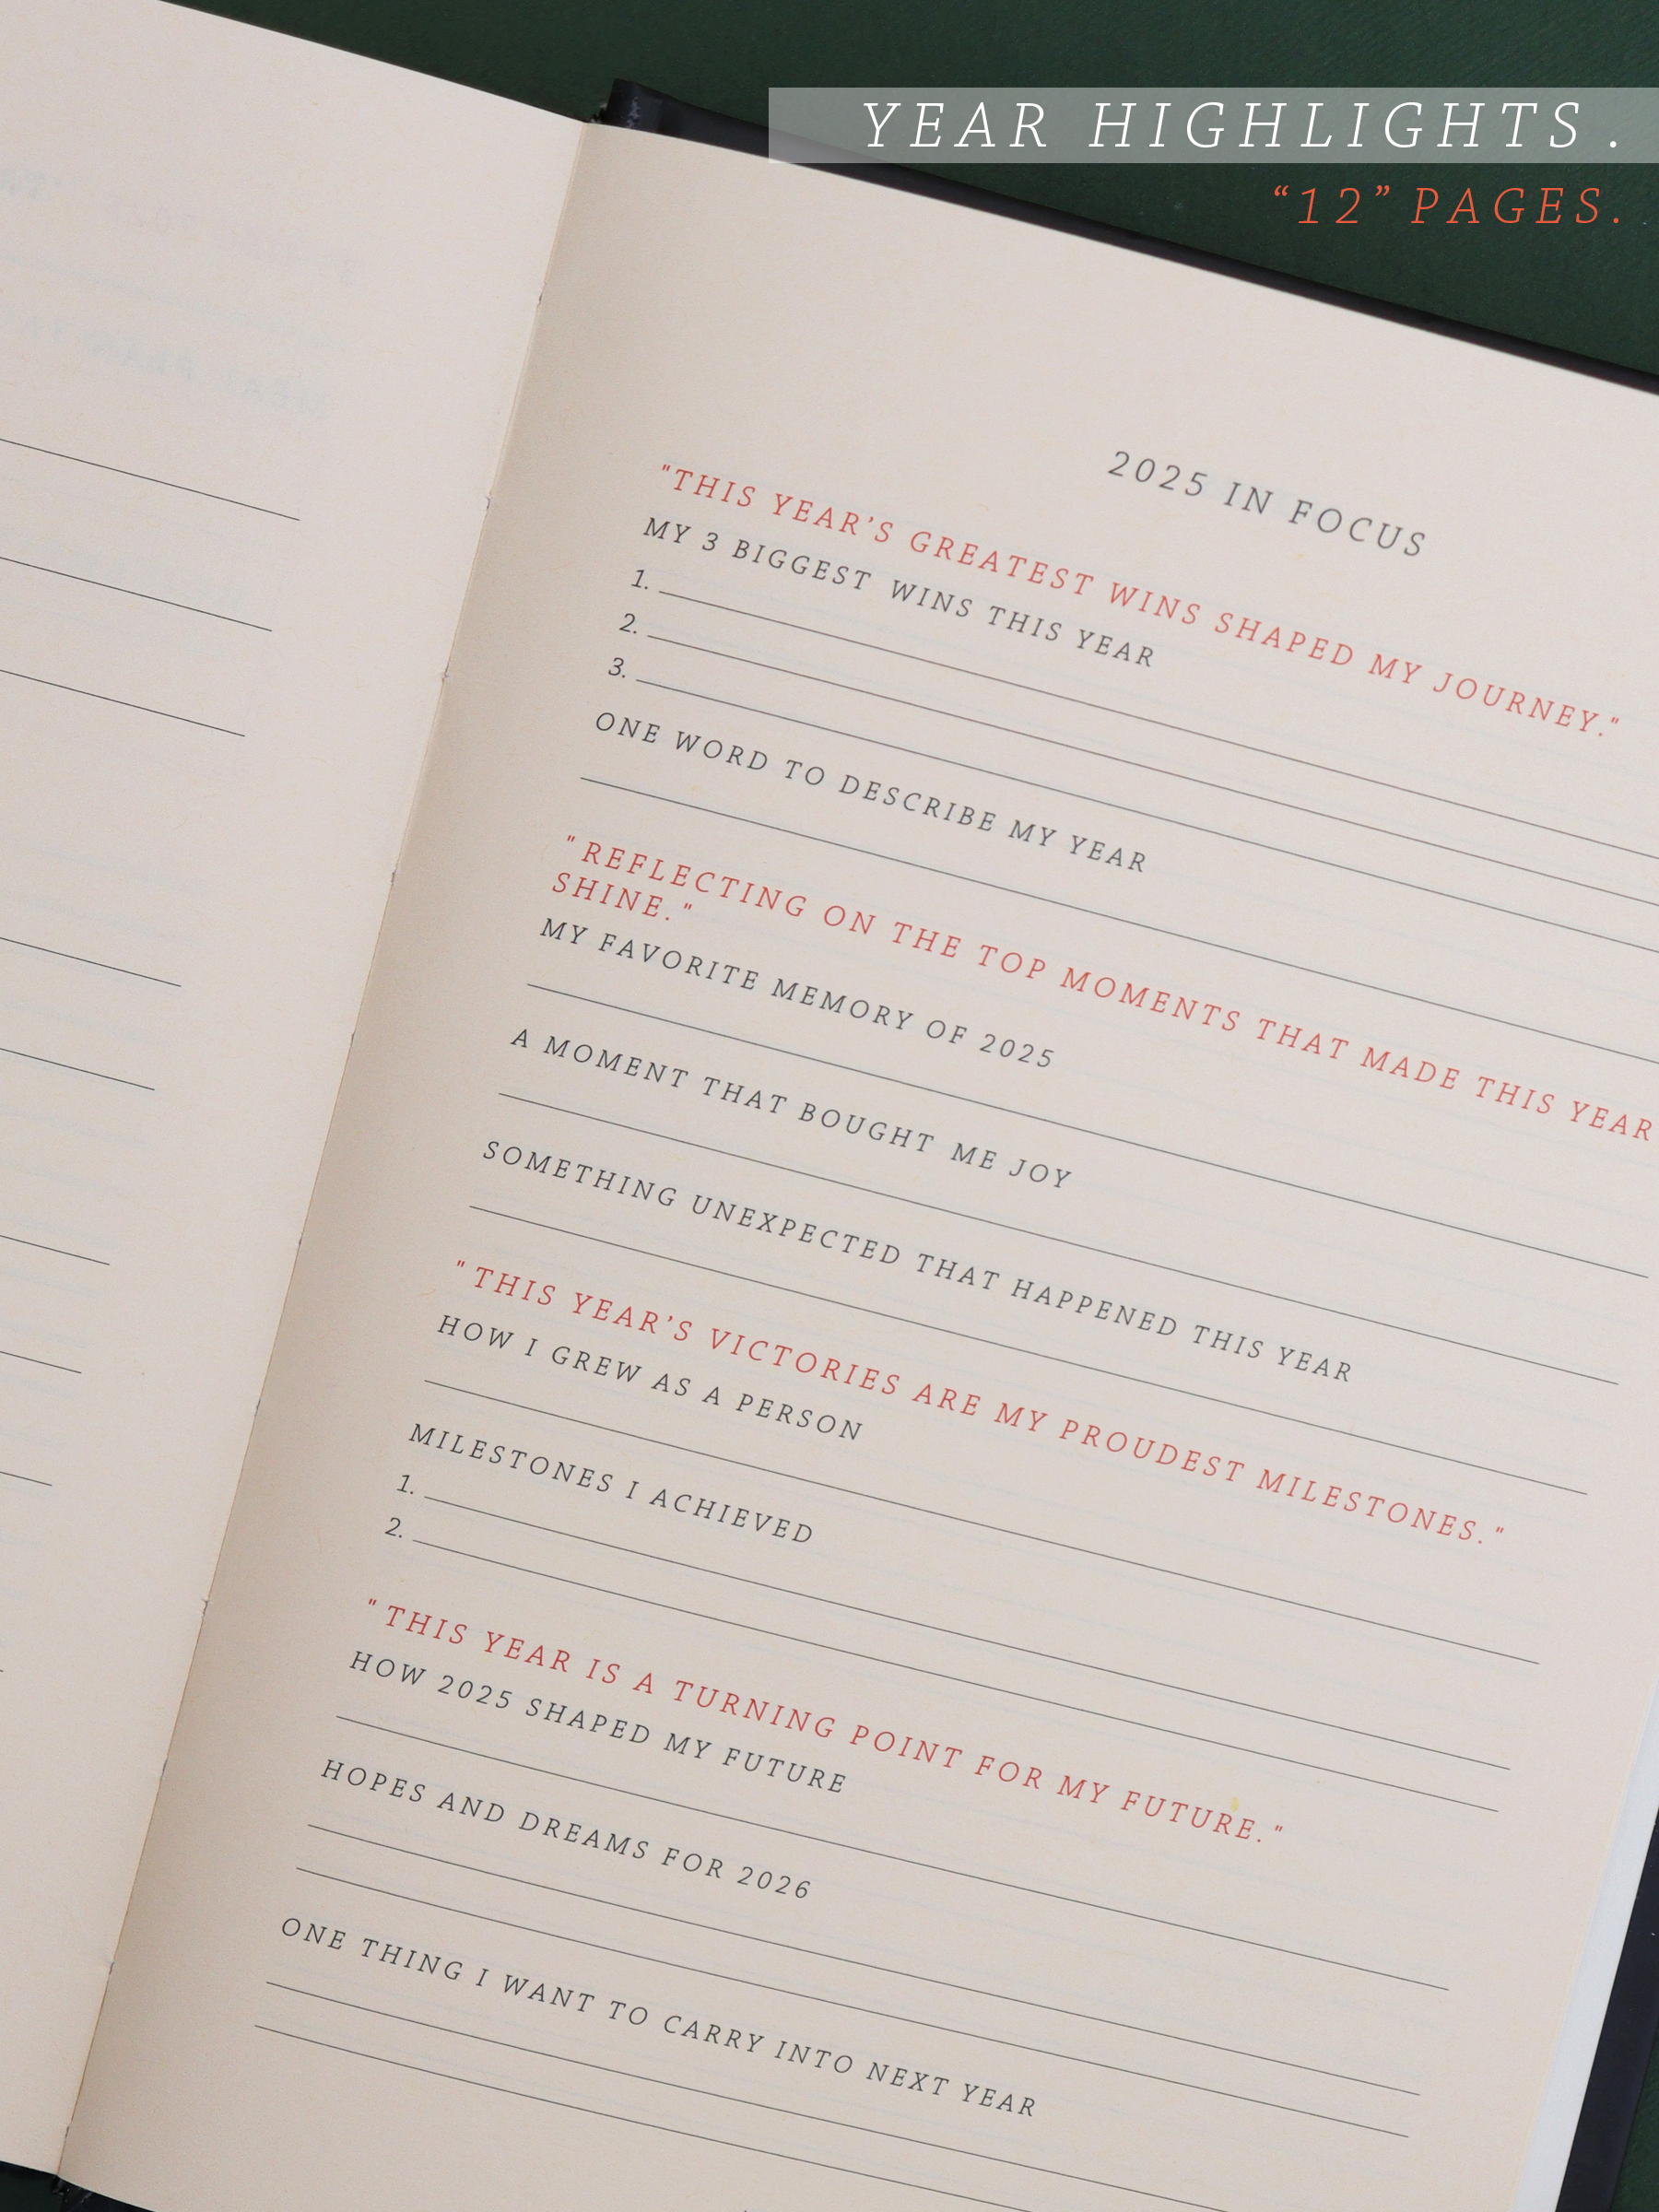 YEAR HIGHLIGHTS.
“12” PAGES.
2025 IN FOCUS
"THIS YEAR’S GREATEST WINS SHAPED MY JOURNEY."
MY 3 BIGGEST WINS THIS YEAR
1.
2.
3.
ONE WORD TO DESCRIBE MY YEAR
"REFLECTING ON THE TOP MOMENTS THAT MADE THIS YEAR
SHINE."
MY FAVORITE MEMORY OF 2025
A MOMENT THAT BOUGHT ME JOY
SOMETHING UNEXPECTED THAT HAPPENED THIS YEAR
"THIS YEAR’S VICTORIES ARE MY PROUDEST MILESTONES."
HOW I GREW AS A PERSON
MILESTONES I ACHIEVED
1.
2.
"THIS YEAR IS A TURNING POINT FOR MY FUTURE."
HOW 2025 SHAPED MY FUTURE
HOPES AND DREAMS FOR 2026
ONE THING I WANT TO CARRY INTO NEXT YEAR